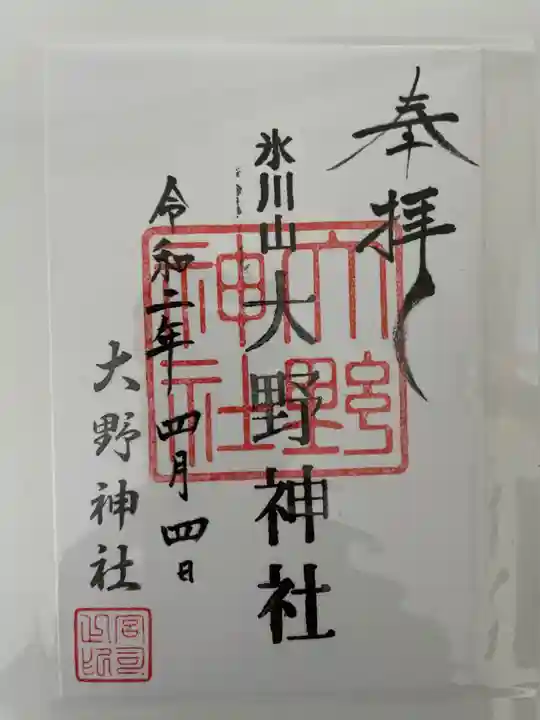 奉拝
氷川山
大野神社
大野神社
令和二年四月四日
大野神社
宮司之印